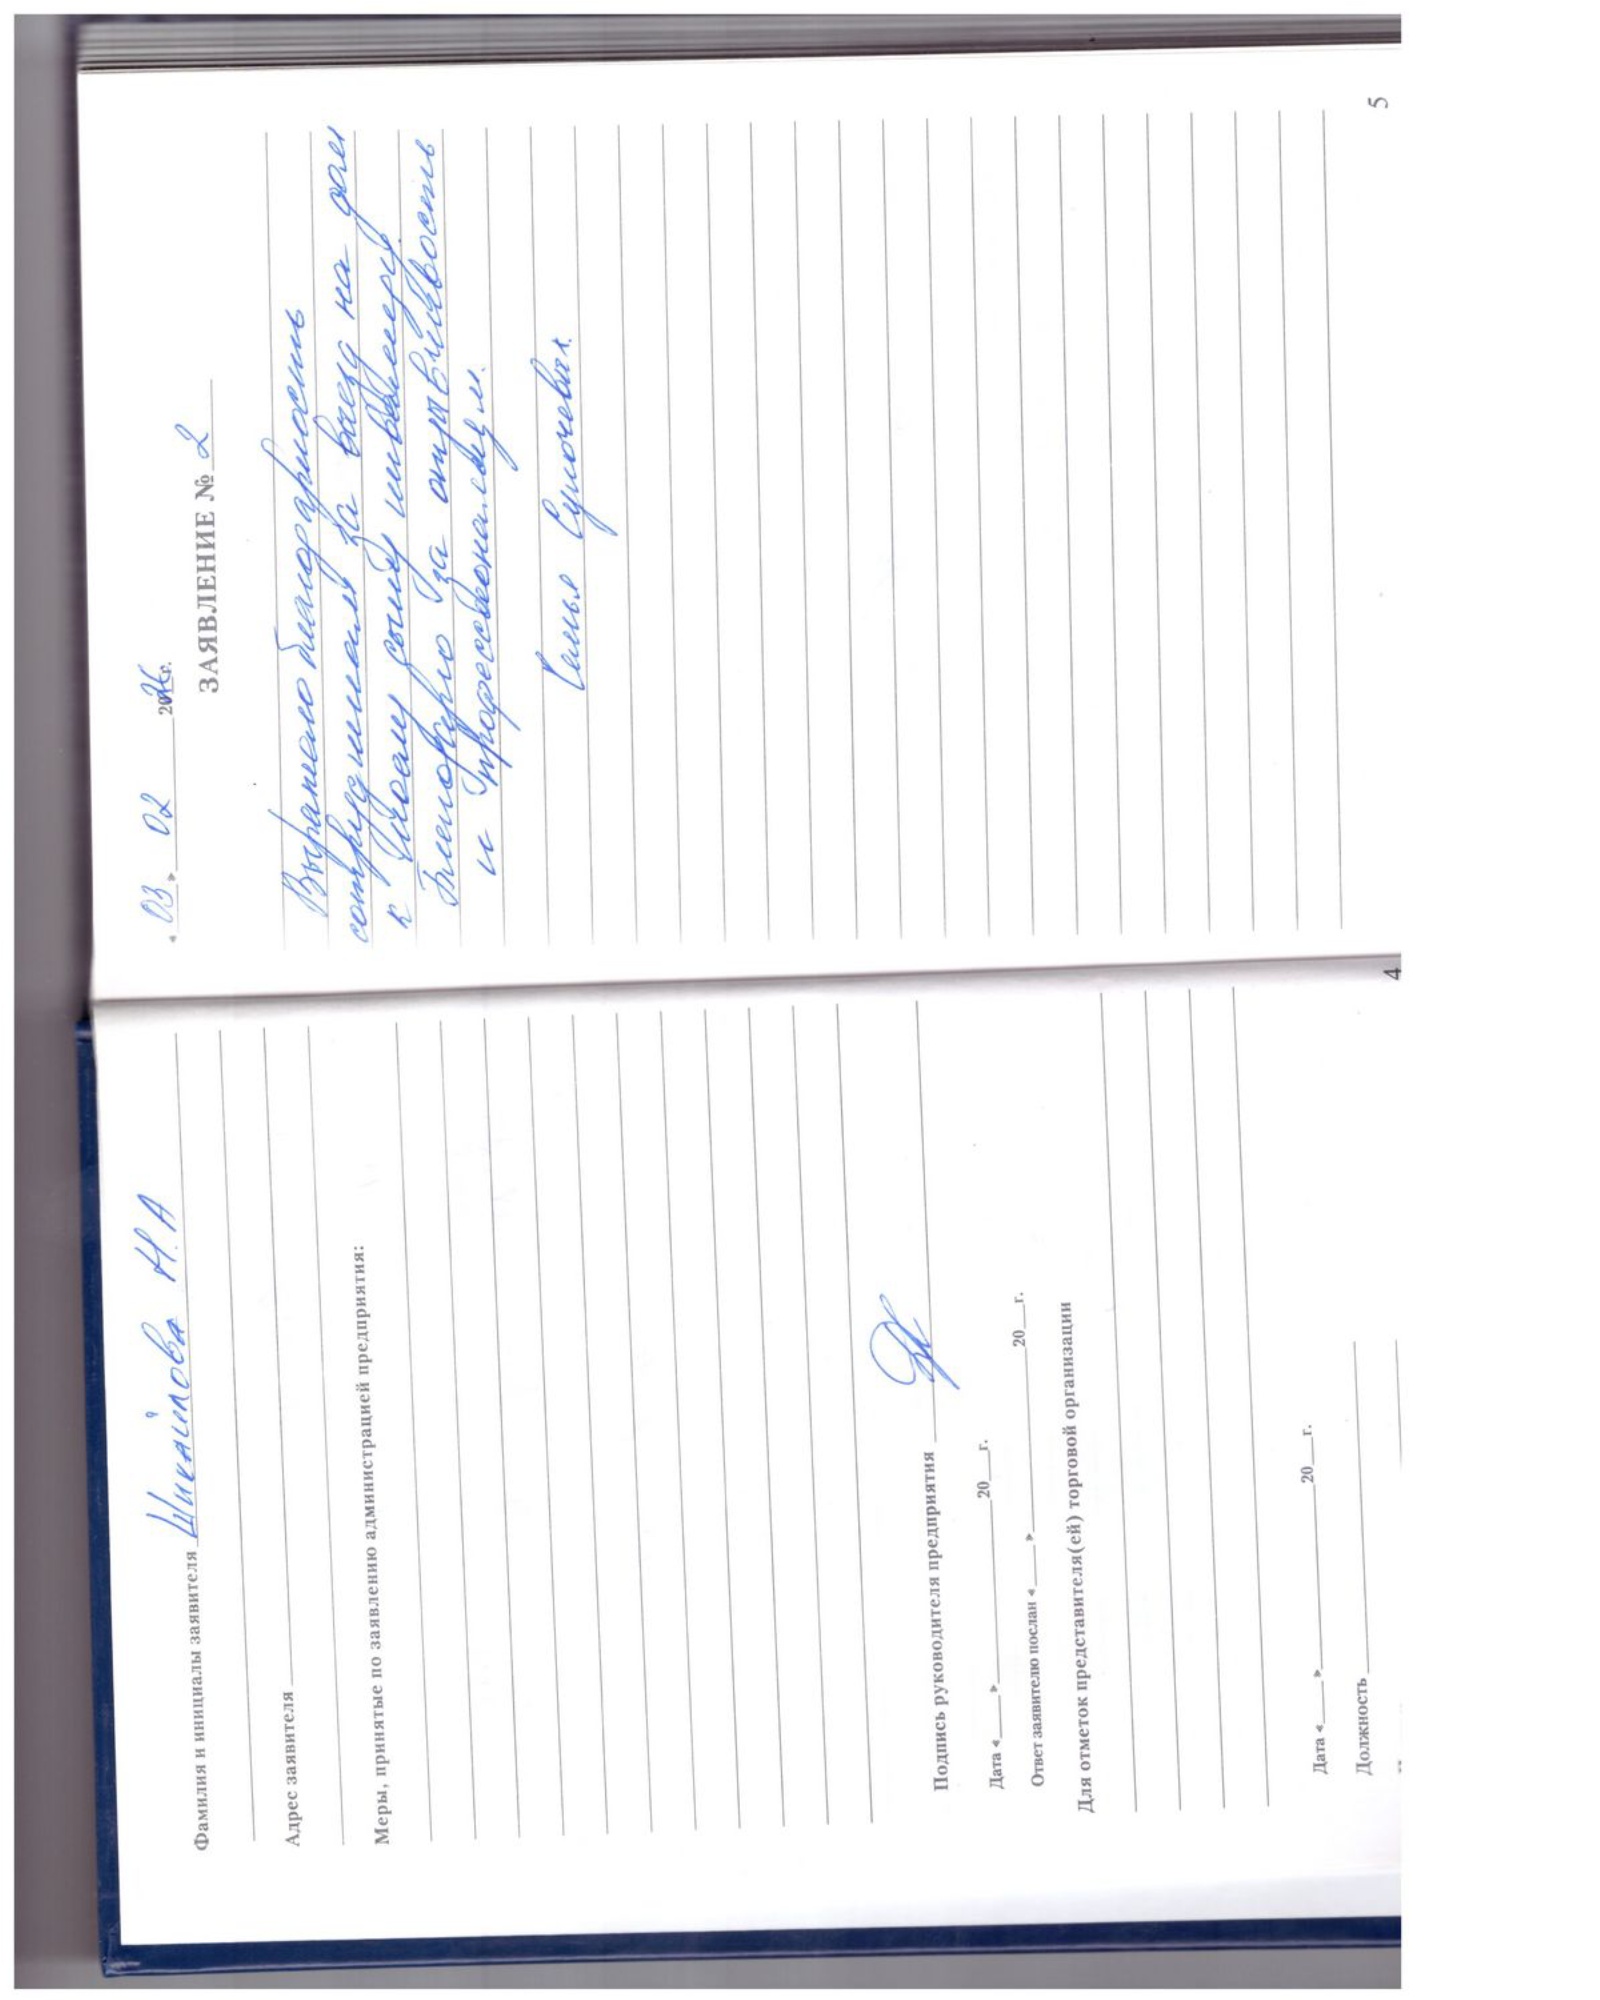 Фамилия и инициалы заявителя Шикайлова Н.А
Адрес заявителя
Меры, принятые по заявлению администрацией предприятия:
Подпись руководителя предприятия
Дата «___»_________20__г.
Ответ заявителю послан «___»_________20__г.
Для отметок представителя(ей) торговой организации
Дата «___»_________20__г.
Должность
4
«03» 02 2026г.
ЗАЯВЛЕНИЕ № 2
Выражаю благодарность
сотрудникам за выезд на дом
к моему сыну инвалиду.
Благодарю за отзывчивость
и профессионализм.
Семья
5